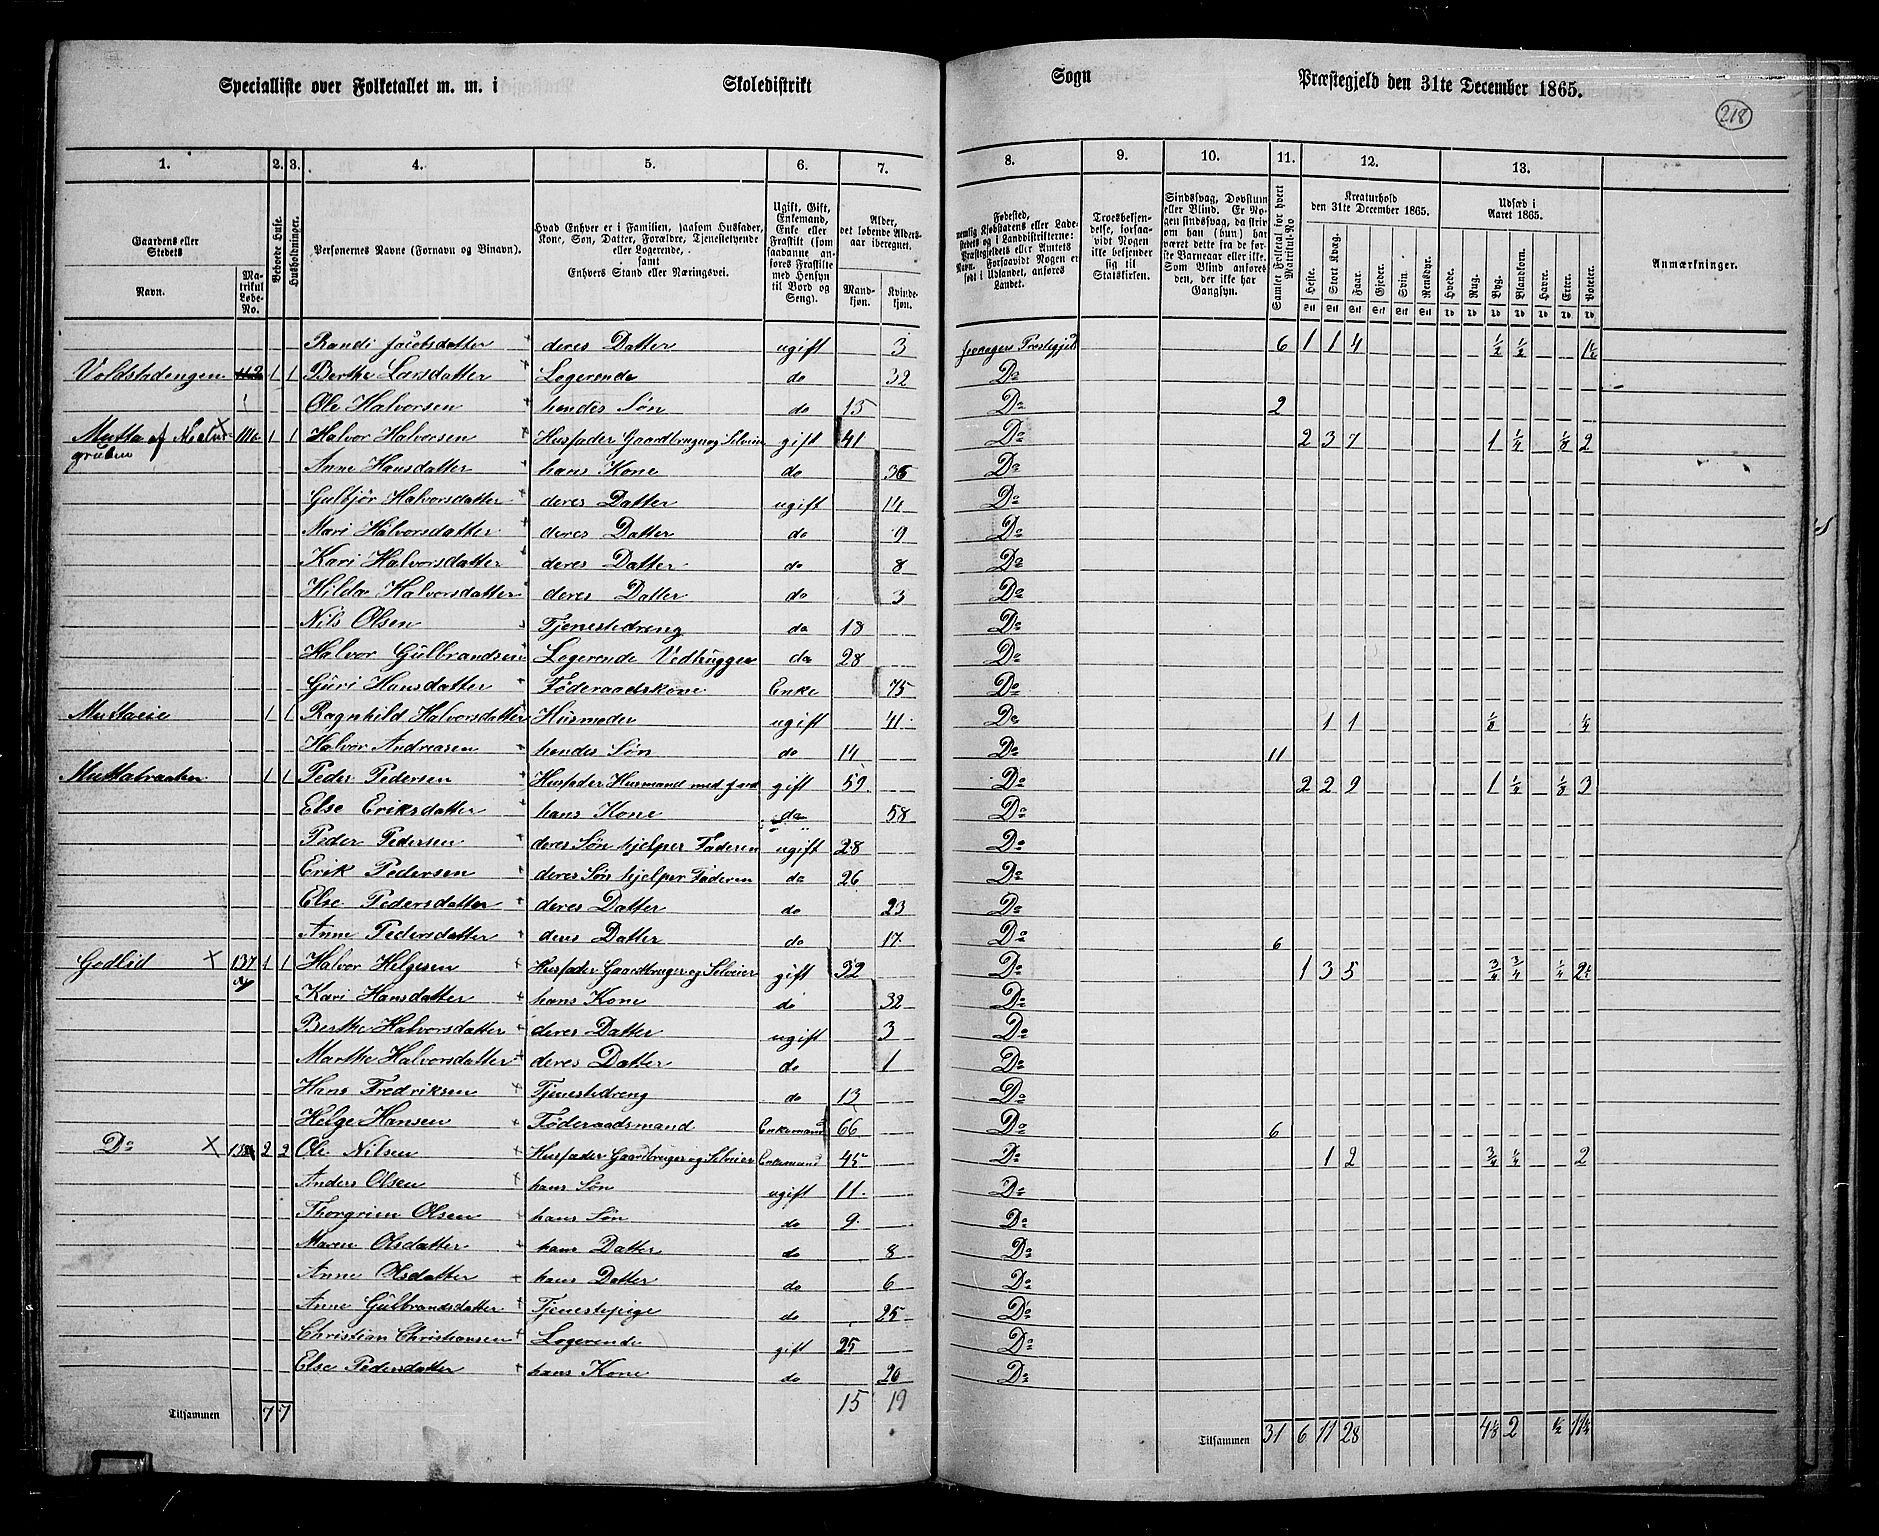 Specialliste over Folketallet m. m. i Skoledistrikt Sogn Præstegjeld den 31te December 1865.
218
1. 2. 3. 4. 5. 6. 7. 8. 9. 10. 11. 12. 13.
Gaardens eller Stedets Navn. Matrikul Løbe-No. Beboede Huse. Husholdninger. Personernes Navne (Fornavn og Binavn). Hvad Enhver er i Familien, saasom Husfader, Kone, Søn, Datter, Forældre, Tjenestetyende eller Logerende, samt Enhvers Stand eller Næringsvei. Ugift, Gift, Enkemand, Enke eller Fraskilt (som saadanne anføres Fraskilte med Hensyn til Bord og Seng). Alder, det løbende Aldersaar iberegnet. Mandkjøn. Kvindekjøn.
Fødested, nemlig Kjøbstadens eller Ladestedets og i Landdistrikterne: Præstegjeldets eller Amtets Navn. Forsaavidt Nogen er født i Udlandet, anføres Landet. Troesbekjendelse, forsaavidt Nogen ikke bekjender sig til Statskirken. Sindssvag, Døvstum eller Blind. Er Nogen sindssvag, da skrives om han (hun) har været dette fra de første Barneaar eller ikke. Som Blind anføres den, der ikke har Gangsyn. Samlet Folketal for hvert Matrikul-No Kreaturhold den 31te December 1865. Heste. Stort Kvæg. Faar. Gjeder. Svin. Rensdyr. Udsæd i Aaret 1865. Hvede. Rug. Byg. Blandkorn. Havre. Erter. Poteter. Anmærkninger.
Randi Jacobsdatter deres Datter ugift 3 Jevnagers Prestegjeld 6 1 1 4 ½ ½ 1½
Voldstadengen 112 1 1 Berthe Larsdatter Logerende do 32 Do
Ole Halvorsen hendes Søn do 15 Do 2
Mutta af 116 1 1 Halvor Halversen Husfader Gaardbruger og Selveier gift 41 Do 2 3 7 1 ¼ ⅛ 2
gruben Anne Hansdatter hans Kone do 36 Do
Gulbjør Halvorsdatter deres Datter ugift 14 Do
Mari Halvorsdatter deres Datter do 9 Do
Kari Halvorsdatter deres Datter do 8 Do
Hilda Halvorsdatter deres Datter do 3 Do
Nils Olsen Tjenestedreng do 18 Do
Halvor Gulbrandsen Logerende Vedhugger do 28 Do
Guri Hansdatter Føderaadskone Enke 75 Do
Muttaeie 1 1 Ragnhild Halvorsdatter Husmoder ugift 41 Do 1 1 ⅛ ¼
Halvor Andreasen hendes Søn do 14 Do 11
Muttabraaten 1 1 Peder Pedersen Husfader Husmand med Jord gift 59 Do 2 2 9 1 ¼ ⅛ 3
Else Eriksdatter hans Kone do 58 Do
Peder Pedersen deres Søn hjelper Faderen ugift 28 Do
Erik Pedersen deres Søn hjelper Faderen do 26 Do
Else Pedersdatter deres Datter do 23 Do
Anne Pedersdatter deres Datter do 17 Do 6
Godlid 137 1 1 Halvor Helgesen Husfader Gaardbruger og Selveier gift 32 Do 1 3 5 ¾ ¾ ¼ 2½
Kari Hansdatter hans Kone do 32 Do
Berthe Halvorsdatter deres Datter ugift 3 Do
Marthe Halvorsdatter deres Datter do 1 Do
Hans Fredriksen Tjenestedreng do 13 Do
Helge Hansen Føderaadsmand Enkemand 66 Do 6
Do 2 2 Ole Nilsen Husfader Gaardbruger og Selveier Enkemand 45 Do 1 2 ¾ ¼ 2
Anders Olsen hans Søn ugift 11 Do
Thorgrim Olsen hans Søn do 9 Do
Maren Olsdatter hans Datter do 8 Do
Anne Olsdatter hans Datter do 6 Do
Anne Gulbrandsdatter Tjenestepige do 25 Do
Christian Christiansen Logerende gift 25 Do
Else Pedersdatter hans Kone do 26 Do
Tilsammen 7 7 15 19 Tilsammen 31 6 11 28 4⅛ 2 ½ 11¼